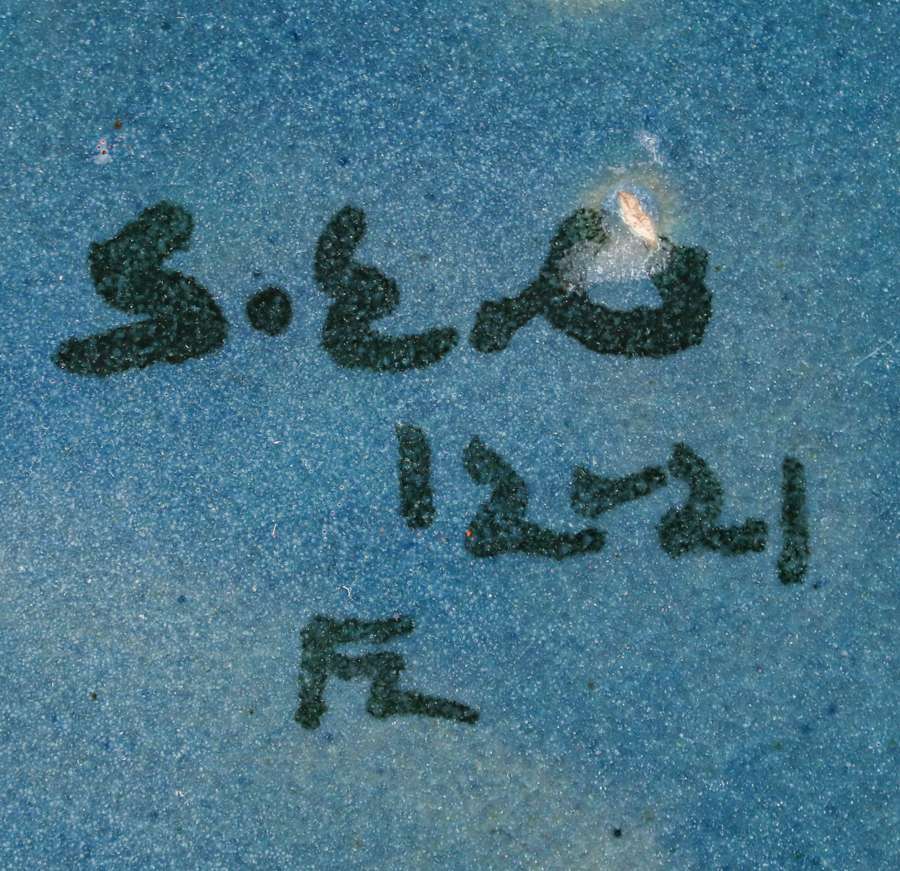 S.EG
12-21
FL